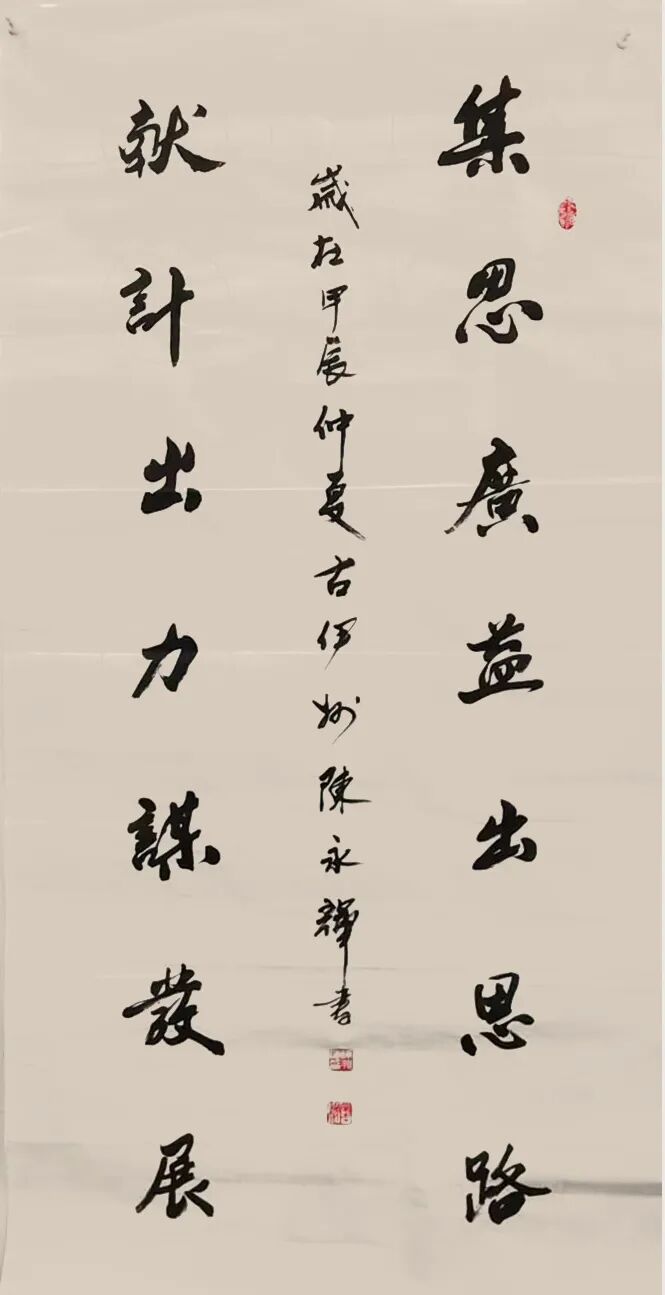 集思廣益出思路
献計出力謀發展
歲在甲辰仲夏古伊州陳永輝書